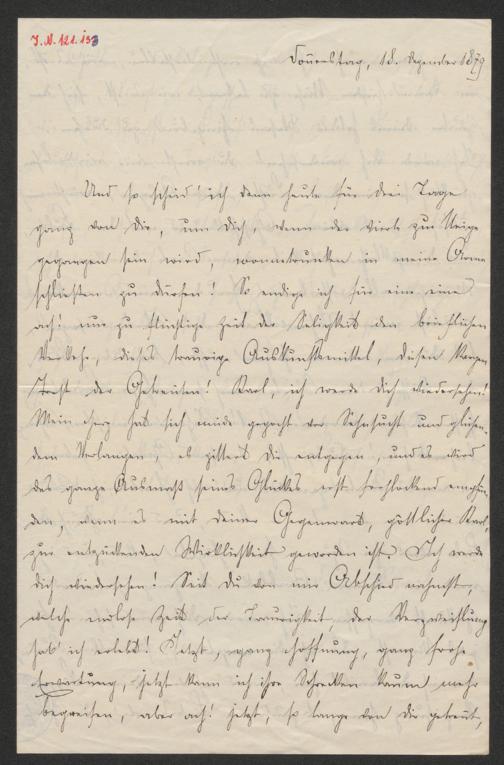 J. N. 121.153
Donnerstag, 18. Dezember 1879
Und so scheid' ich denn heute für drei Tage
ganz von Dir, um Dich, wenn der vierte zur Neige
gegangen sein wird, wonnetrunken in meine Arme
schließen zu dürfen! So endige ich für eine eine
ach! nur zu flüchtige Zeit der Seligkeit den brieflichen
Verkehr, dieses traurige Auskunftsmittel, diesen kargen
Trost der Getrennten! Karl, ich werde Dich wiedersehen!
Mein Herz hat sich müde gepocht vor Sehnsucht und glühen-
dem Verlangen, es zittert Dir entgegen, und es wird
das ganze Ausmaß seines Glückes erst frohlockend empfin-
den, wenn es mit Deiner Gegenwart, göttlicher Karl,
zur entzückenden Wirklichkeit geworden ist. Ich werde
Dich wiedersehen! Seit Du von mir Abschied nahmst,
welche endlose Zeit der Traurigkeit, der Verzweiflung
hab' ich erlebt! Jetzt, ganz Hoffnung, ganz frohe
Erwartung, jetzt kann ich ihre Schrecken kaum mehr
begreifen, aber ach! jetzt, so lange von Dir getrennt,